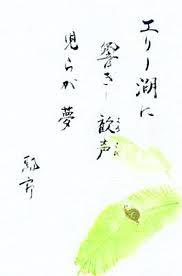 エリー湖に
響きし歓声
児らが夢